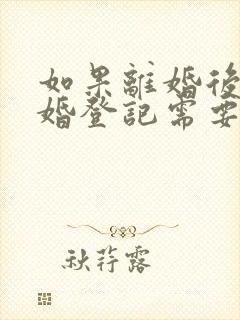 如果離婚後
婚登記需要
秋荇露